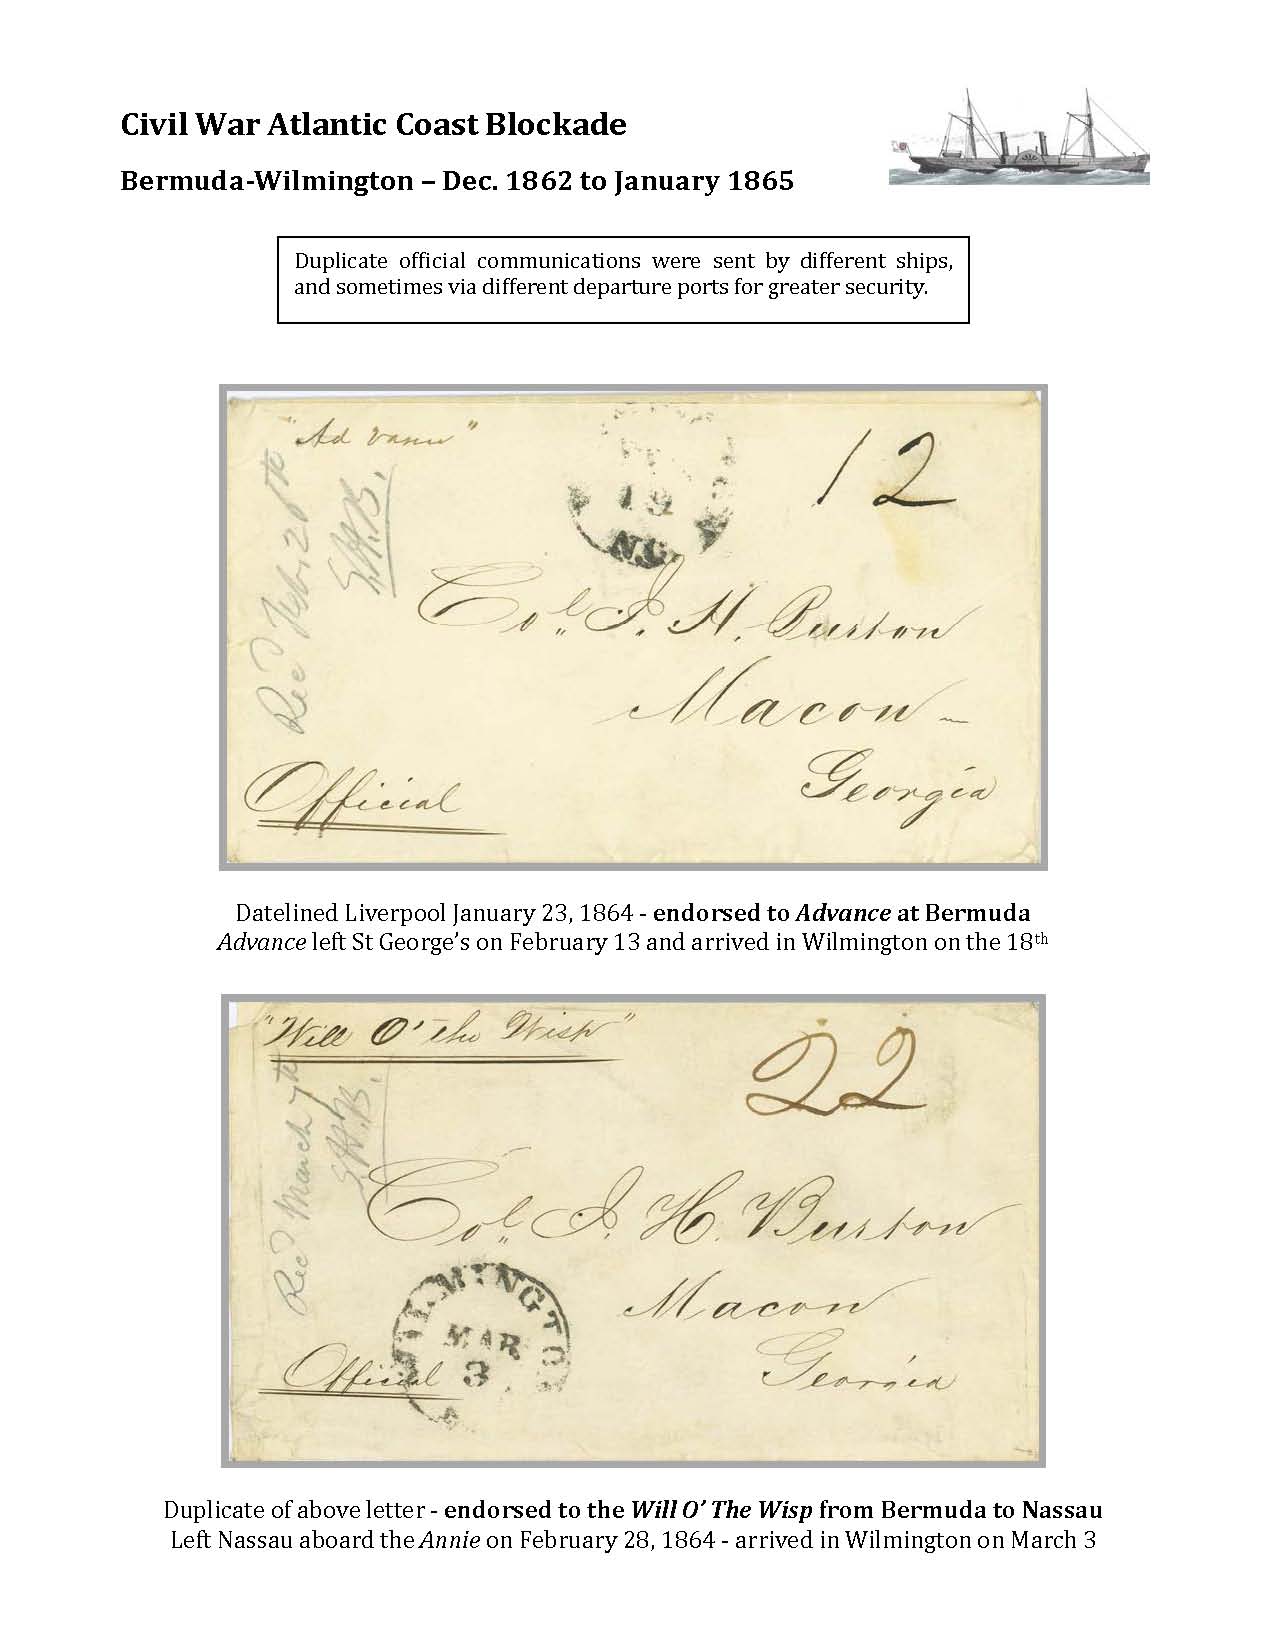 Civil War Atlantic Coast Blockade
Bermuda-Wilmington – Dec. 1862 to January 1865
Duplicate official communications were sent by different ships,
and sometimes via different departure ports for greater security.
"Ad vance"
12
Rec'd Feb. 20th
19
N.C.
Col. J. H. Burton
Macon -
Georgia
Official
Datelined Liverpool January 23, 1864 - endorsed to Advance at Bermuda
Advance left St George's on February 13 and arrived in Wilmington on the 18th
"Will O' the Wisp"
22
Rec'd March 7th
Col. J. H. Burton
Macon
Georgia
WILMINGTON
MAR
3
Official
Duplicate of above letter - endorsed to the Will O' The Wisp from Bermuda to Nassau
Left Nassau aboard the Annie on February 28, 1864 - arrived in Wilmington on March 3